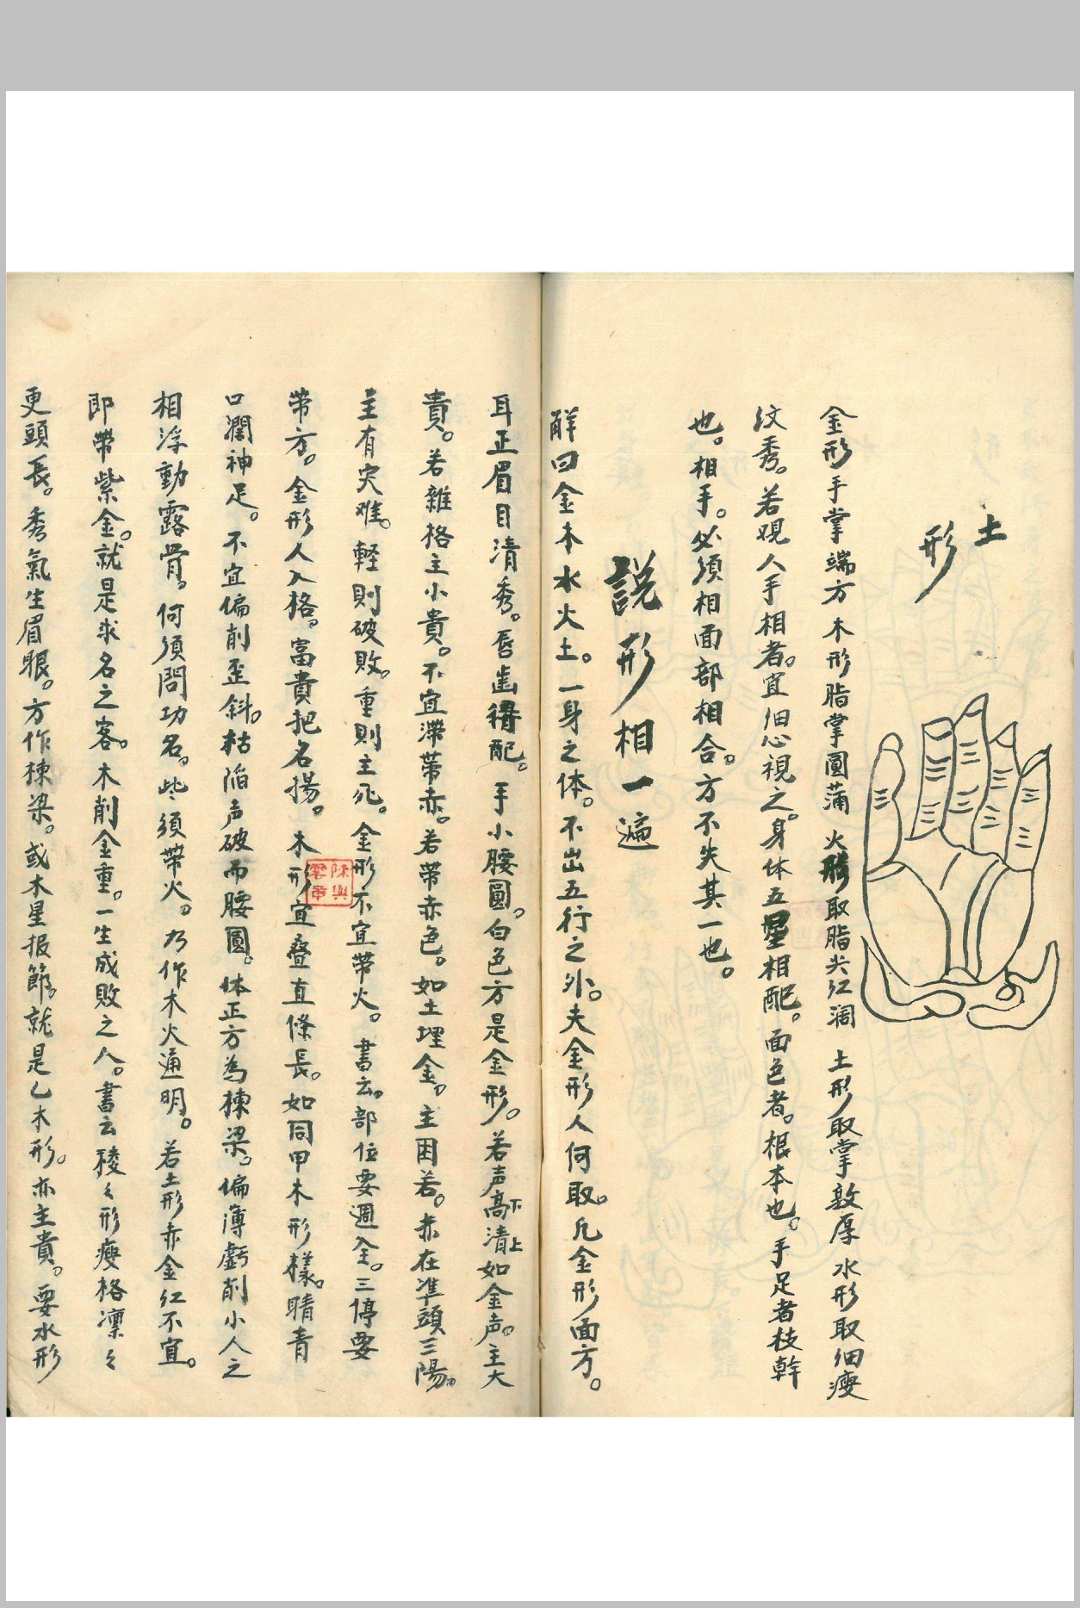 土形
金形手掌端方 木形脂掌圓蒲 火形取脂尖江濶 土形取掌敦厚 水形取细瘦
紋秀。若观人手相者。宜细心視之。身体五星相配。面色者。根本也。手足者枝幹
也。相手。必须相面部相合。方不失其一也。
說形相一遍
觧曰金木水火土。一身之体。不出五行之外。夫金形人何取。凡金形面方。
耳正眉目清秀。唇齒得配。手小腰圓。白色方是金形。若声高清如金声。主大
下上
貴。若雜格主小貴。不宜滞带赤。若带赤色。如土埋金。主困若。赤在凖頭三陽。
主有灾难。軽則破敗。重則主死。金形不宜带火。書云。部位要週全。三停要
带方。金形人入格。富貴把名揚。木形宜叠直條長。如同甲木形樣。睛青
口濶神足。不宜偏削歪斜。枯陷声破而腰圓。体正方為棟梁。偏薄虧削小人之
相浮動露骨。何須問功名。些須带火。乃作木火通明。若土形赤金红不宜。
即带紫金。就是求名之客。木削金重。一生成敗之人。書云稜々形瘦格凛々
更頭長。秀氣生眉眼。方作棟梁。或木星报節。就是乙木形。亦主貴。要水形
陳興